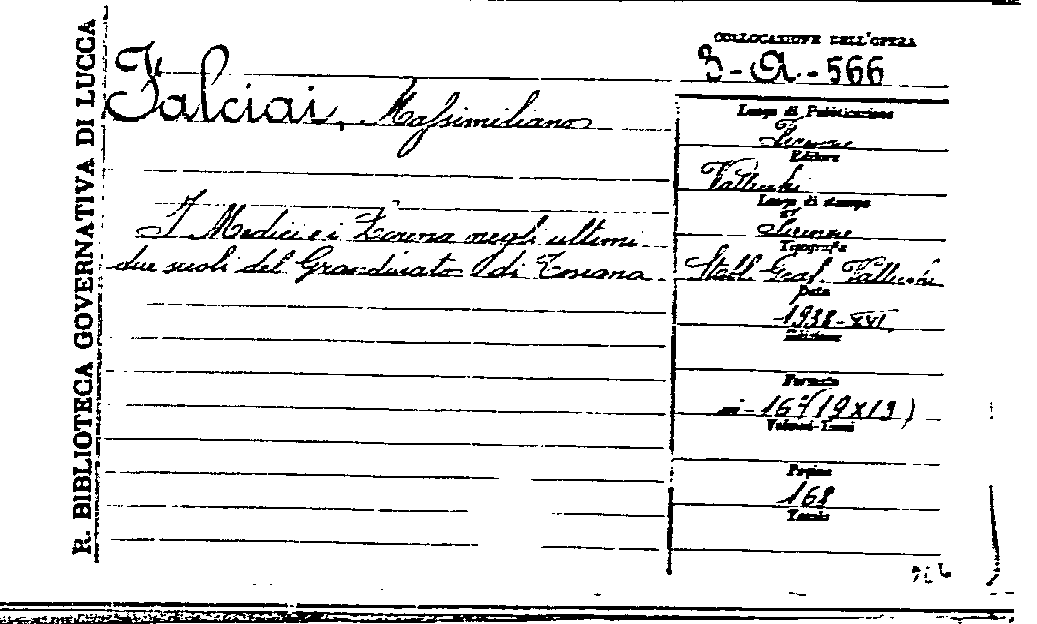 R. BIBLIOTECA GOVERNATIVA DI LUCCA
Falciai, Massimiliano
I Medici e i Lorena negli ultimi
due secoli del Granducato di Toscana
COLLOCAZIONE DELL'OPERA
3-A-566
Luogo di Pubblicazione
Firenze
Editore
Vallecchi
Luogo di stampa
Firenze
Tipografia
Stabl. Graf. Vallecchi
Data
1938-XVI
Edizione
Formato
in-16° (19x13)
Volumi-Tomi
Pagine
168
Tavole